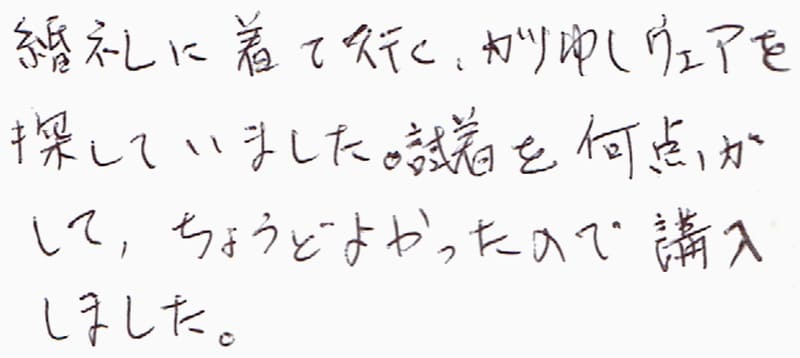 婚礼に着て行く、かりゆしウェアを
探していました。試着を何点か
して、ちょうどよかったので講入
しました。